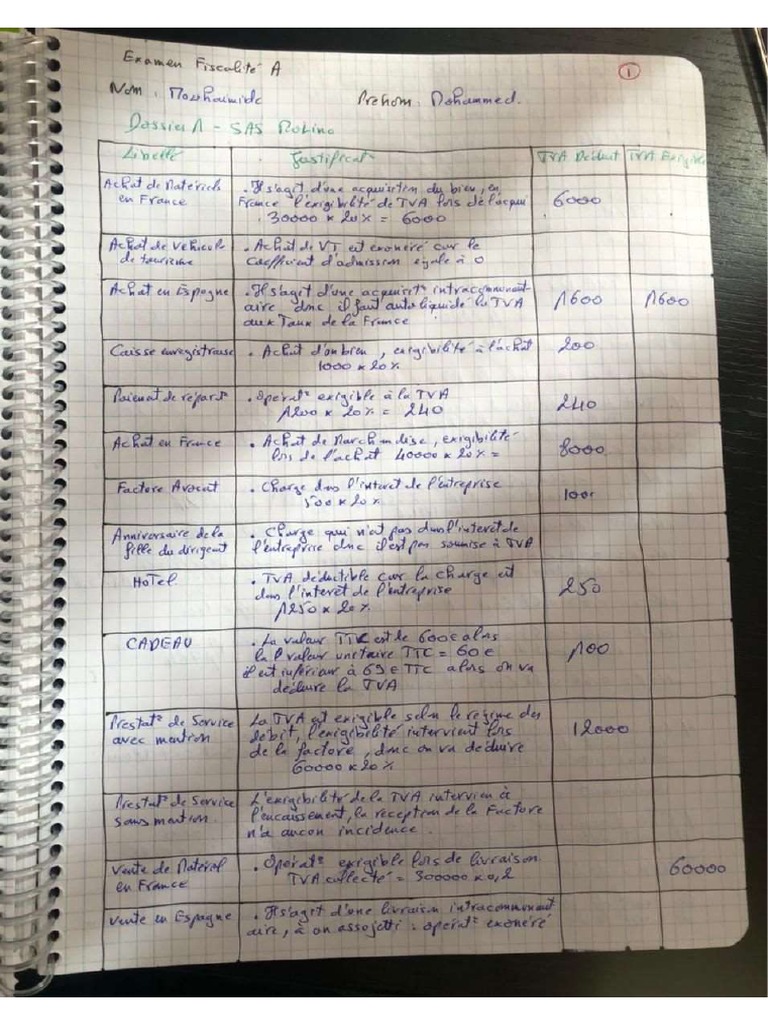 Examen Fiscalité A
1
Nom : Mouhoumide Prénom : Mohammed.
Dossier 1 - SAS Moline
Libellé Justificat° TVA Déduct TVA Exigible
Achat de Matériels en France
. Il s'agit d'une acquisition du bien, en
France l'exigibilité de TVA lors de l'acqui
30000 x 20% = 6000
6000
Achat de véhicule
de tourisme
. Achat de VT est exonéré car le
coefficient d'admission égale à 0
Achat en Espagne
. Il s'agit d'une acquisit° intracommunaut-
aire donc il faut autoliquide la TVA
aux Taux de la France
1600 1600
Caisse enregistreuse
. Achat d'un bien, exigibilité à l'achat
1000 x 20%
200
Paiemat de réparat°
. Operat° exigible à la TVA
1200 x 20% = 240
240
Achat en France
. Achat de Marchandise, exigibilité
lors de l'achat 40000 x 20% =
8000
Facture Avocat
. Charge dans l'interet de l'entreprise
500 x 20%
100
Anniversaire de la
fille du dirigent
. Charge qui n'est pas dans l'interet de
l'entreprise donc il est pas soumise à TVA
HOTEL
. TVA déductible car la charge est
dans l'interet de l'entreprise
1250 x 20%
250
CADEAU
. La valeur TTC est de 600€ alors
la valeur unitaire TTC = 60€
il est inférieur à 69€ TTC alors on va
déduire la TVA
100
Prestat° de Service
avec mention
La TVA est exigible selon le régime des
débit, l'exigibilité intervient lors
de la facture, donc on va déduire
60000 x 20%
12000
Prestat° de Service
sans mention.
L'exigibilité de la TVA intervien à
l'encaissement, la reception de la Facture
n'a aucon incidence.
Vente de Matériel
en France
. Opérat° exigible lors de livraison
TVA collecté = 300000 x 0,2
60000
Vente en Espagne
. Il s'agit d'une livraison intracommunaut
aire, à on assojetti : operat° exonéré